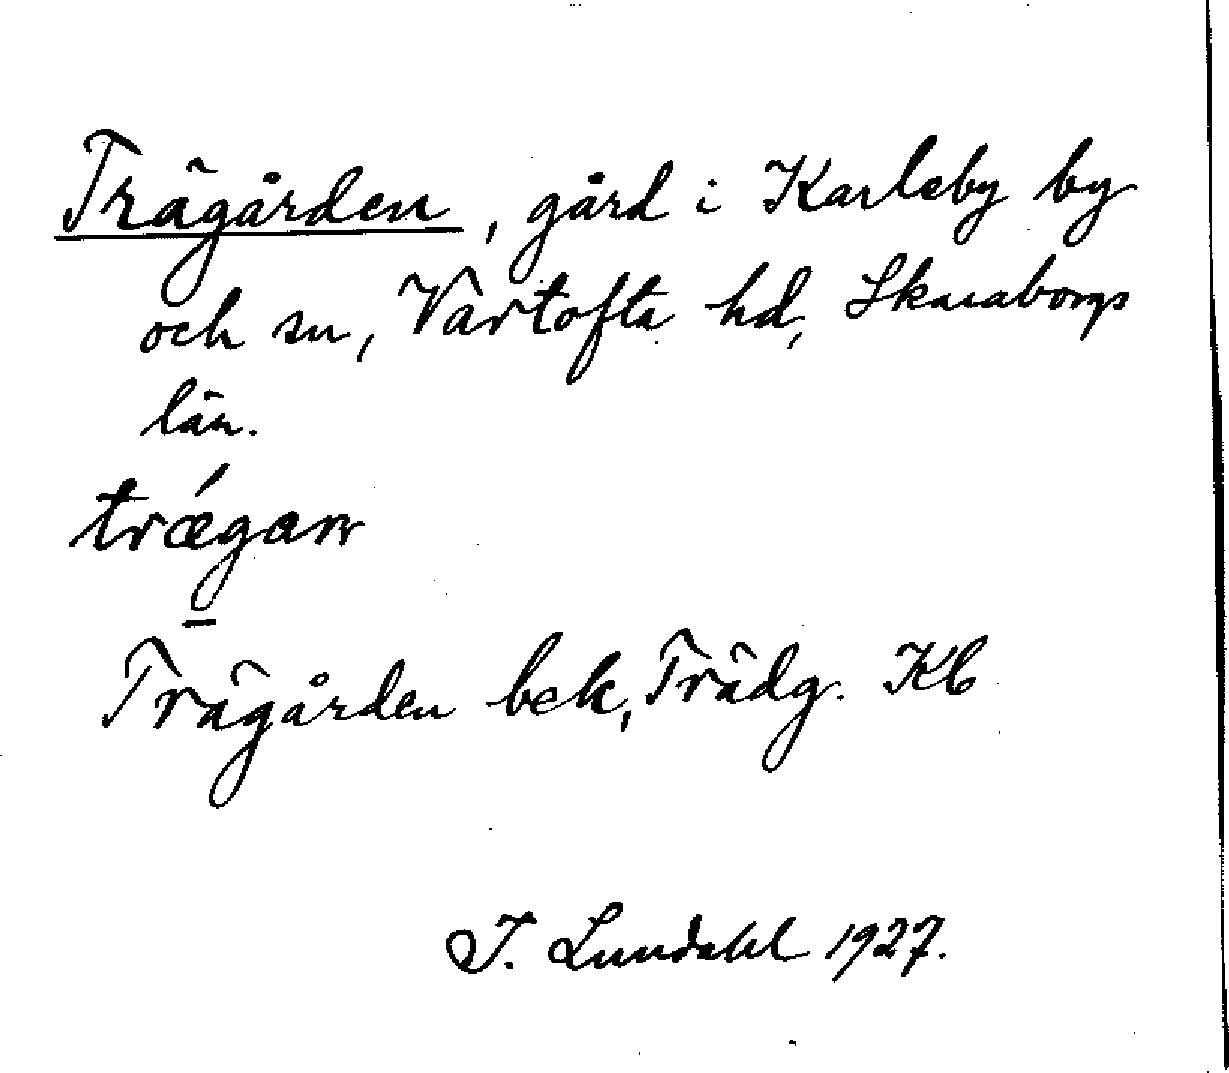 Trägården, gård i Karleby by
och sn, Vartofta hd, Skaraborgs
län.
trǽgarn
Trägården bek, Trädg. Kb
I. Lundahl 1927.